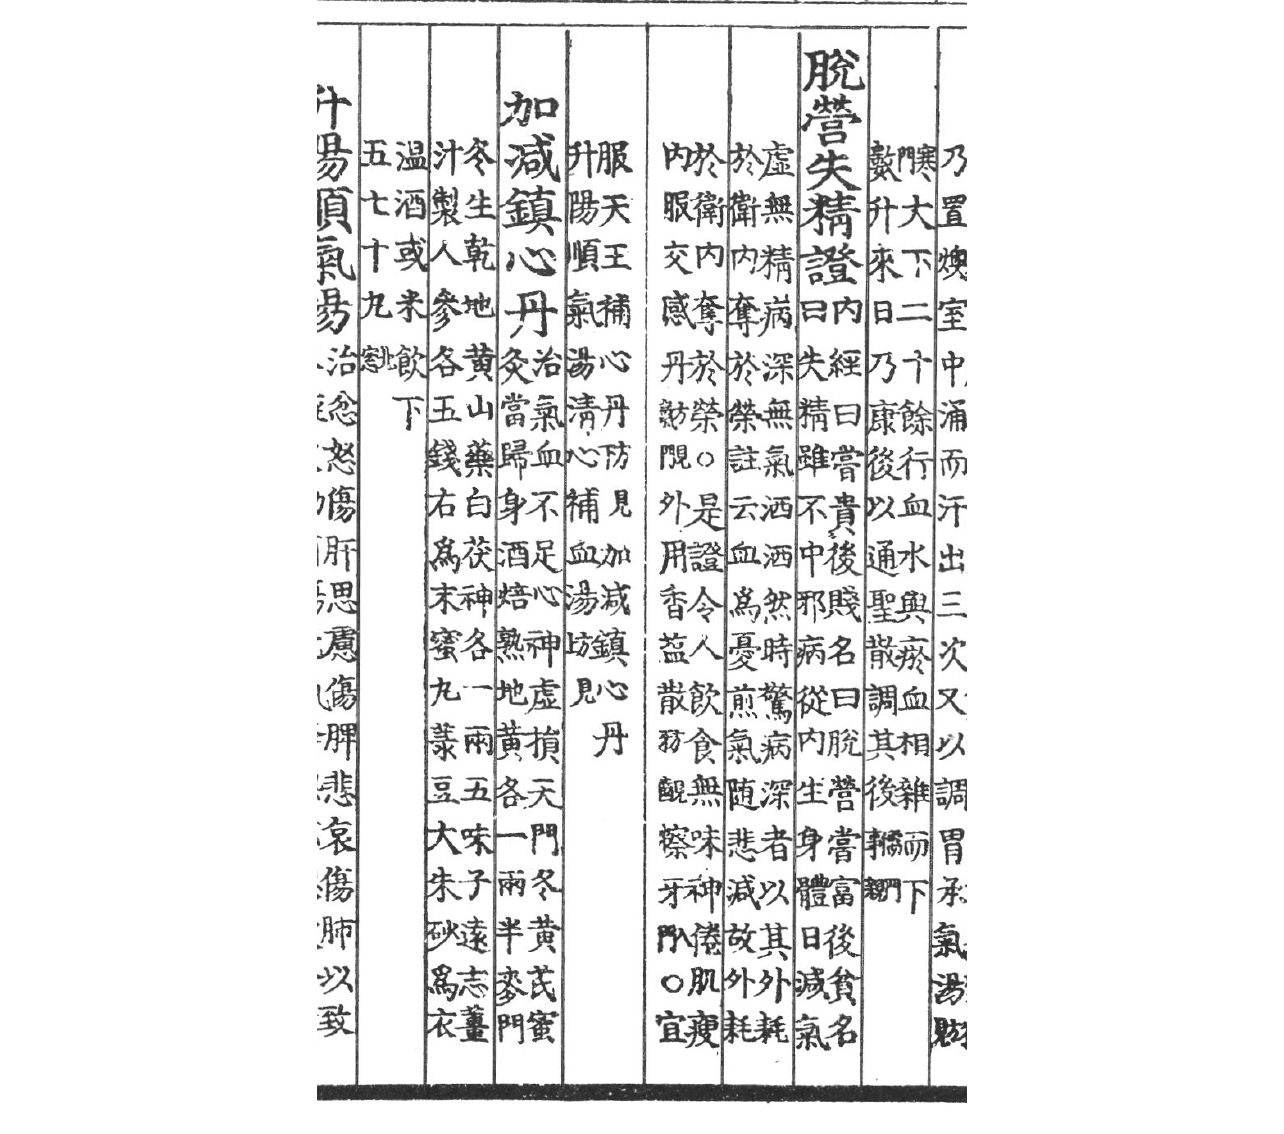 乃置燠室中涌而汗出三次又以調胃承氣湯
寒大下二十餘行血水與瘀血相雜而下
數升來日乃康後以通聖散調其後
脫營失精證
內經曰嘗貴後賤名曰脫營嘗富後貧名
曰失精雖不中邪病從內生身體日減氣
虛無精病深無氣洒洒然時驚病深者以其外耗
於衛內奪於榮註云血為憂煎氣随悲減故外耗
於衛內奪於榮○是證令人飲食無味神倦肌瘦
內服交感丹外用香䀋散擦牙○宜
服天王補心丹見加減鎮心丹
升陽順氣湯清心補血湯見
加減鎮心丹
治氣血不足心神虛損天門冬黃芪蜜
灸當歸身酒焙熟地黃各一兩半麥門
冬生乾地黃山藥白茯神各一兩五味子遠志薑
汁製人參各五錢右為末蜜丸菉豆大朱砂為衣
温酒或米飲下
五七十丸
升陽順氣湯
治忿怒傷肝思慮傷脾悲哀傷肺以致